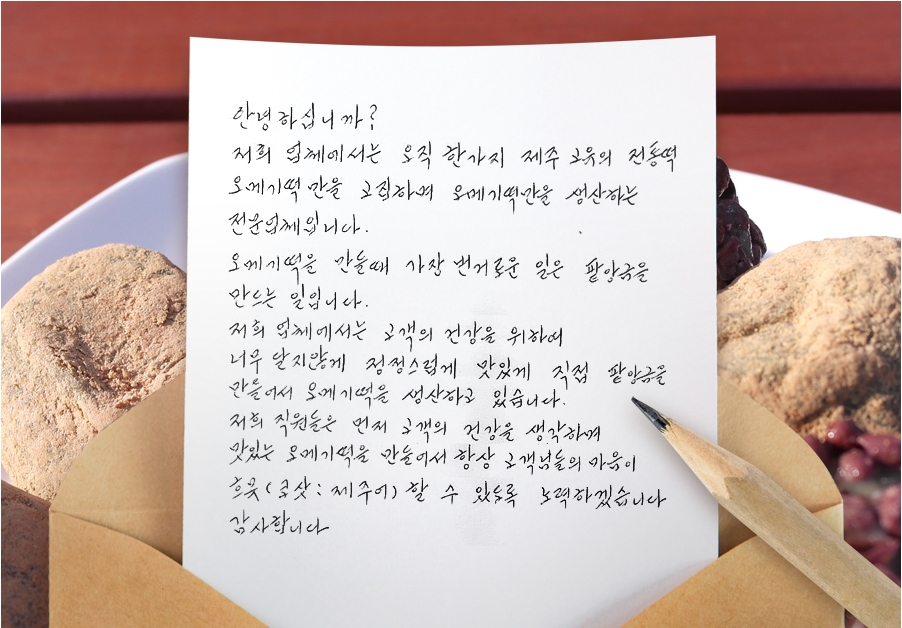 안녕하십니까?
저희 업체에서는 오직 한가지 제주 고유의 전통떡
오메기떡 만을 고집하며 오메기떡만을 생산하는
전문업체입니다.
오메기떡을 만들때 가장 번거로운 일은 팥앙금을
만드는 일입니다.
저희 업체에서는 고객의 건강을 위하여
너무 달지않게 정정스럽게 맛있게 직접 팥앙금을
만들어서 오메기떡을 생산하고 있습니다.
저희 직원들은 먼저 고객의 건강을 생각하며
맛있는 오메기떡을 만들어서 항상 고객님들의 마음이
흐뭇(코삿:제주어) 할 수 있도록 노력하겠습니다
감사합니다